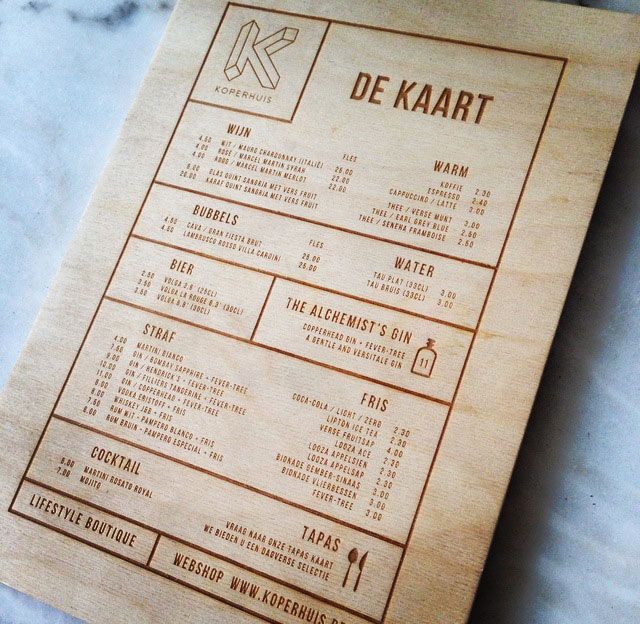 KOPERHUIS
DE KAART
WIJN FLES
4.50 WIT / MAURO CHARDONNAY (ITALIË) 25.00
4.00 ROSÉ / MARCEL MARTIN SYRAH 22.00
4.00 ROOD / MARCEL MARTIN MERLOT 22.00
6.00 GLAS QUINT SANGRIA MET VERS FRUIT
20.00 KARAF QUINT SANGRIA MET VERS FRUIT
WARM
KOFFIE 2.30
ESPRESSO 2.40
CAPPUCCINO / LATTE 3.00
THEE / VERSE MUNT 3.00
THEE / EARL GREY BLUE 2.50
THEE / SENCHA FRAMBOISE 2.50
BUBBELS FLES
4.50 CAVA / GRAN FIESTA BRUT 25.00
4.50 LAMBROSSO ROSSO VILLA CARDINI 25.00
WATER
TAU PLAT (33CL) 3.00
TAU BRUIS (33CL) 3.00
BIER
2.50 VOLGA 3.6° (25CL)
3.50 VOLGA LA ROUGE 8.3° (30CL)
3.50 VOLGA 8.8° (30CL)
THE ALCHEMIST'S GIN
COPPERHEAD GIN + FEVER-TREE
A GENTLE AND VERSITALE GIN
11
STRAF
4.00 MARTINI BIANCO
7.50 GIN / BOMBAY SAPPHIRE + FEVER-TREE
9.00 GIN / HENDRICK'S + FEVER-TREE
10.00 GIN / FILLIERS TANGERINE + FEVER-TREE
11.00 GIN / COPPERHEAD + FEVER-TREE
VODKA ERISTOFF + FRIS
WHISKEY J&B + FRIS
7.50 RUM WIT - PAMPERO BLANCO + FRIS
8.50 RUM BRUIN - PAMPERO ESPECIAL + FRIS
FRIS
COCA-COLA / LIGHT / ZERO 2.30
LIPTON ICE TEA 2.30
VERSE FRUITSAP 4.00
LOOZA ACE 2.50
LOOZA APPELSIEN 2.50
LOOZA APPELSAP 2.50
BIONADE GEMBER-SINAAS 3.00
BIONADE VLIERBESSEN 3.00
FEVER-TREE 3.00
COCKTAIL
6.50 MARTINI ROSATO ROYAL
7.00 MOJITO
TAPAS
VRAAG NAAR ONZE TAPAS KAART
WE BIEDEN U EEN DAGVERSE SELECTIE
LIFESTYLE BOUTIQUE
WEBSHOP WWW.KOPERHUIS.BE